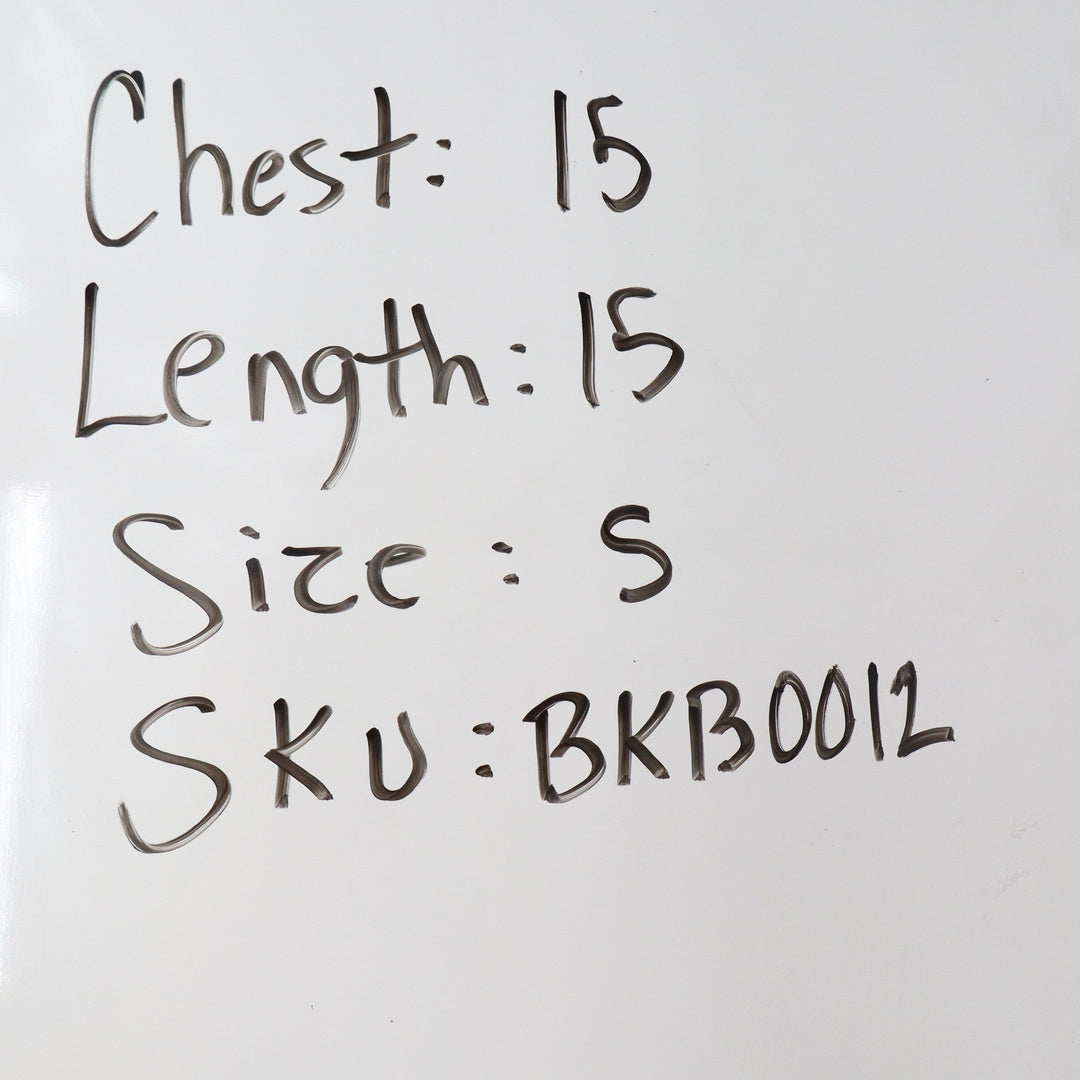 Chest: 15
Length: 15
Size: S
SKU: BKB0012